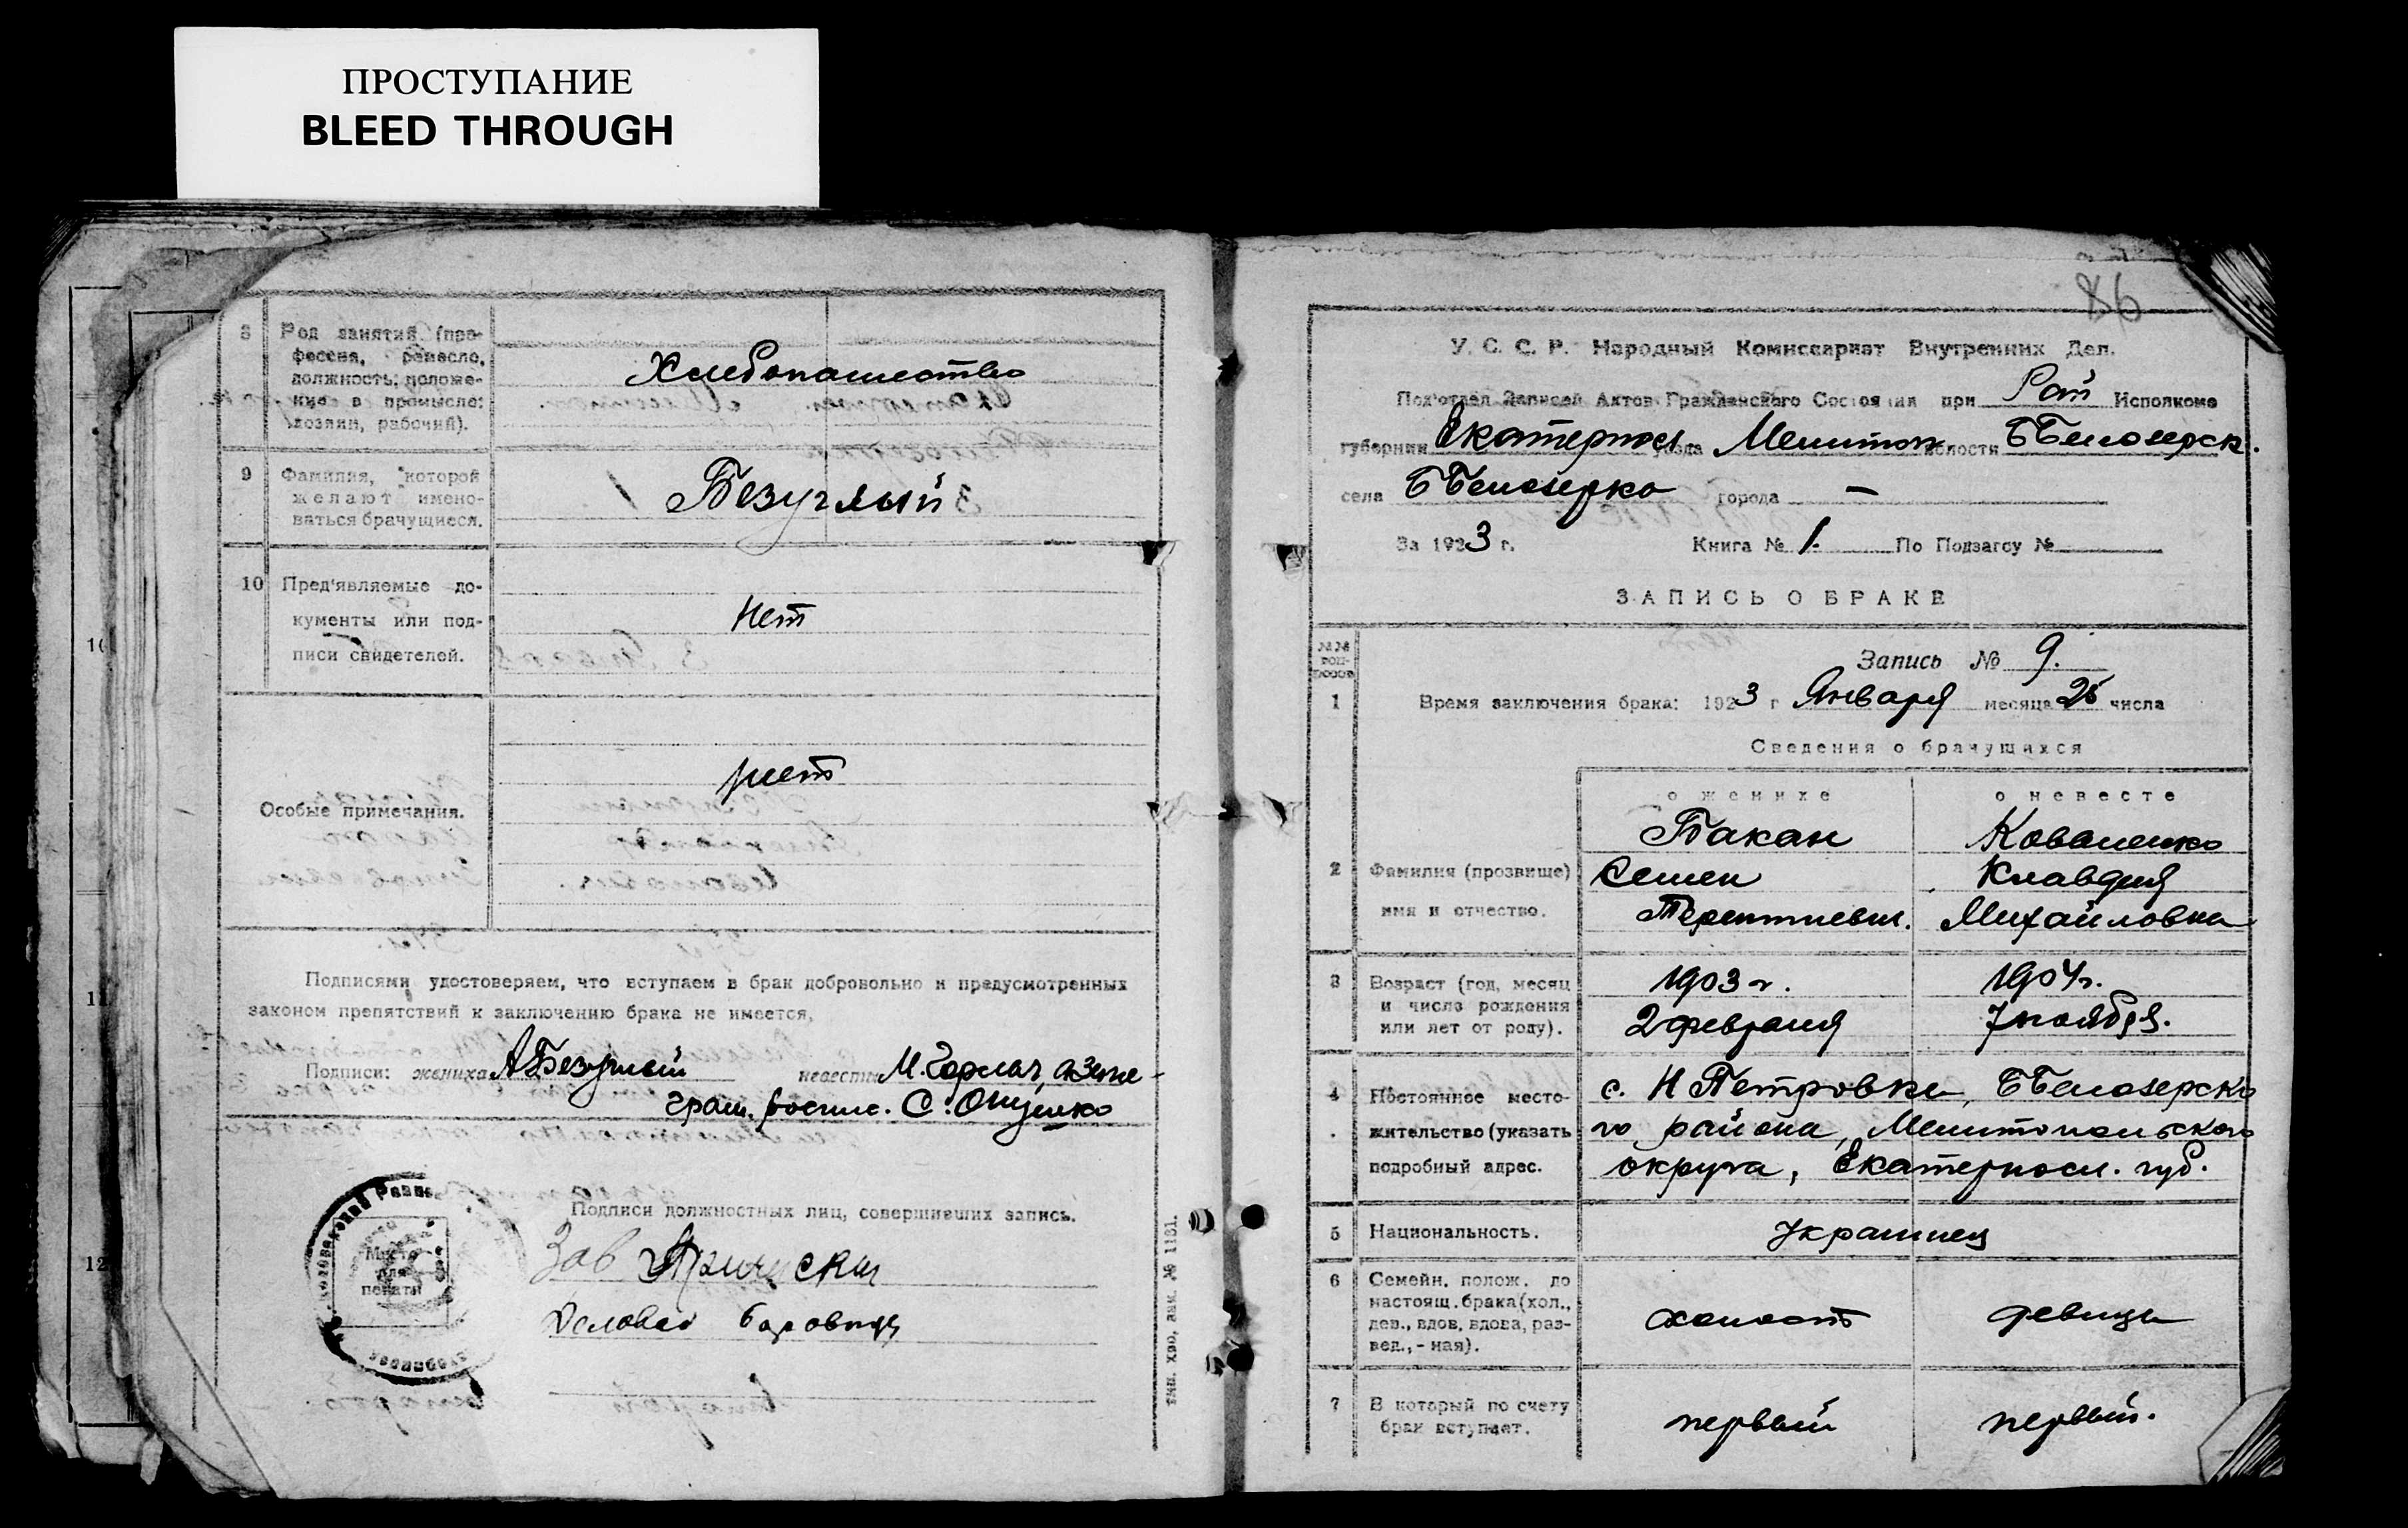 ПРОСТУПАНИЕ
BLEED THROUGH
8 Род занятий (про-
фессия, ремесло,
должность; положе-
ние в промысле:
хозяин, рабочий).
Хлебопашество
9 Фамилия, которой
желают имено-
ваться брачущиеся.
Безуглый
10 Пред'являемые до-
кументы или под-
писи свидетелей.
Нет
Особые примечания.
нет
Подписями удостоверяем, что вступаем в брак добровольно и предусмотренных
законом препятствий к заключению брака не имеется,
Подписи: жениха АБезуглый невесты М. Горлач, а за не-
грам. роспис. С. Онущенко
Подписи должностных лиц, совершивших запись.
Зав
Деловод
Место
для
печати
86
У. С. С. Р. Народный Комиссариат Внутренних Дел.
Под'отдел Записей Актов Гражданского Состояния при Рай Исполкоме
губернии Екатериносл. уезда Мелитоп. волости ББелозерск.
села ББелозерка города —
За 1923 г. Книга № 1. По Подзагсу №
ЗАПИСЬ О БРАКЕ
Запись № 9.
1 Время заключения брака: 1923 г Января месяца 25 числа
Сведения о брачущихся
о женихе о невесте
2 Фамилия (прозвище)
имя и отчество.
Бакан Коваленко
Семен Клавдия
Терентиевич. Михайловна
3 Возраст (год, месяц
и число рождения
или лет от роду).
1903 г. 1904 г.
2 февраля 7 ноября.
4 Постоянное место-
жительство (указать
подробный адрес.
с. Н Петровки, ББелозерско
го района, Мелитопольского
округа, Екатериносл. губ.
5 Национальность.
Украинец
6 Семейн. полож. до
настоящ. брака (хол.,
дев., вдов, вдова, раз-
вед., - ная).
холост девица
7 В который по счету
брак вступает.
первый первый.